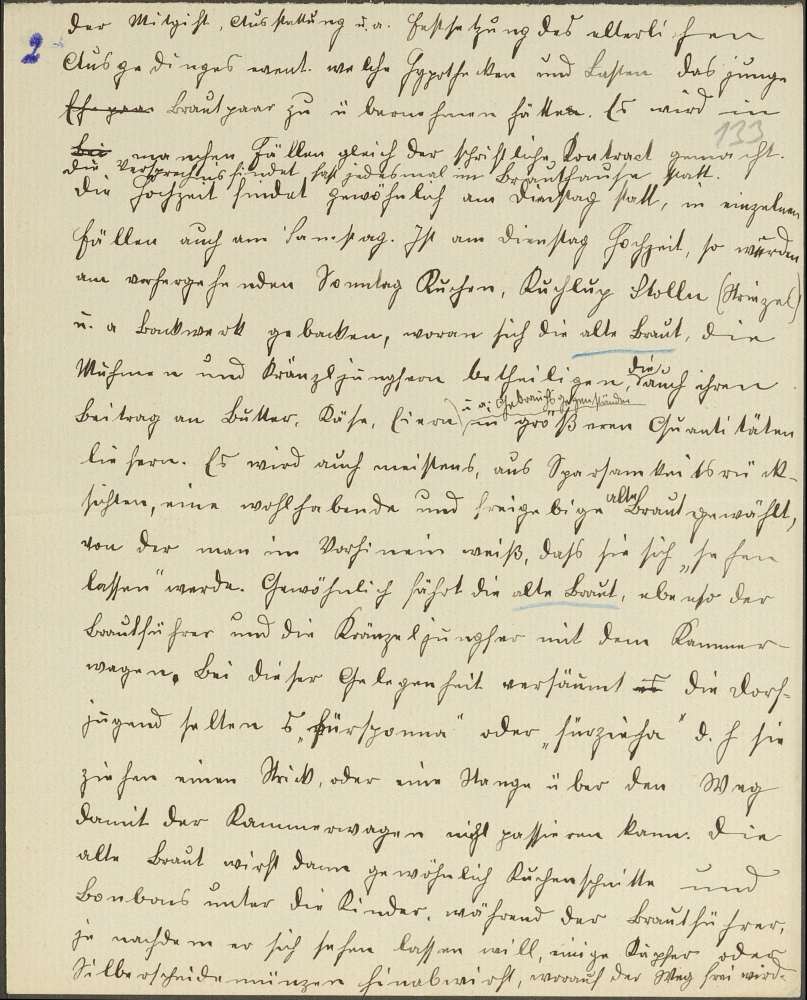 2
der Mitgift, Ausstattung u. a. Festsetzung des elterlichen
Ausgedinges event. welche Hypotheken und Lasten das junge
Ehepaar Brautpaar zu übernehmen hätten. Es wird in
133
Bei manchen Fällen gleich der schriftliche Kontract gemacht.
Die Versprechnis findet fast jedesmal im Brauthause statt.
Die Hochzeit findet gewöhnlich am Dienstag statt, in einzelnen
Fällen auch am Samstag. Ist am Dienstag Hochzeit, so würden
am vorhergehenden Sonntag Kuchen, Kuchlup Stollen (Striezel)
u. a Backwerk gebacken, woran sich die alte Braut, die
Muhmen und Kränzljungfern betheiligen, die auch ihren
u. a. Gebrauchsgegenständen
Beitrag an Butter, Käse, Eiern in größeren Quantitäten
liefern. Es wird auch meistens, aus Sparsamkeitsrück-
sichten, eine wohlhabende und freigebige alte Braut gewählt,
von der man im Vorhinein weiß, dass sie sich „sehen
lassen" werde. Gewöhnlich fährt die alte Braut, ebenso der
Brautführer und die Kränzeljungfer mit dem Kammer-
wagen. Bei dieser Gelegenheit versäumt es die Dorf-
jugend selten 's „fürsponna" oder „fürzieha" d. h sie
ziehen einen Strick, oder eine Stange über den Weg
damit der Kammerwagen nicht passieren kann. Die
alte Braut wirft dann gewöhnlich Kuchenschnitte und
Bonbons unter die Kinder, während der Brautführer,
je nachdem er sich sehen lassen will, einige Kupfer oder
Silberscheidemünzen hinabwirft, worauf der Weg frei wird.